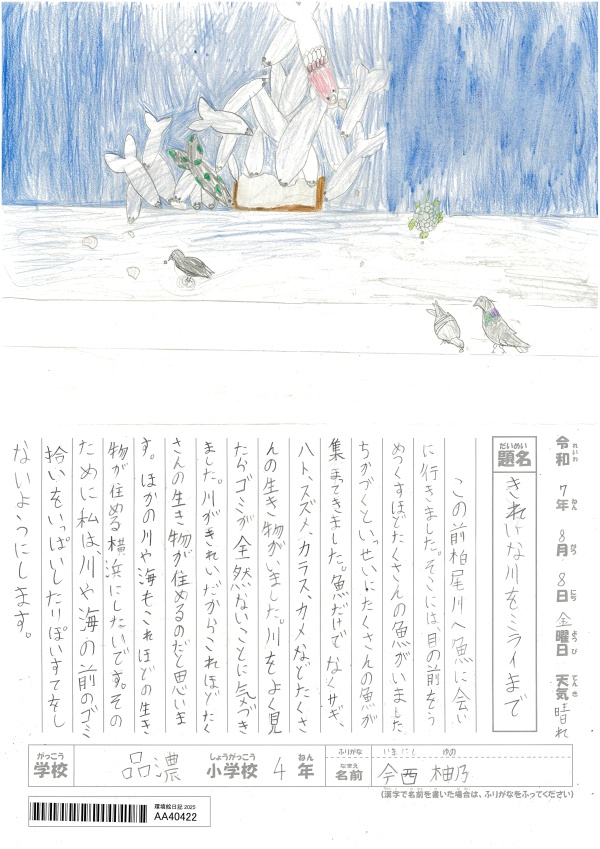 令和 7年 8月 8日 金曜日 天気 晴れ
題名 きれいな川をミライまで
この前柏尾川へ魚に会い
に行きました。そこには、目の前をう
めつくすほどたくさんの魚がいました。
ちかづくといっせいにたくさんの魚が
集まってきました。魚だけでなくサギ、
ハト、スズメ、カラス、カメなどたくさ
んの生き物がいました。川をよく見
たらゴミが全然ないことに気づき
ました。川がきれいだからこれほどたく
さんの生き物が住めるのだと思いま
す。ほかの川や海もこれほどの生き
物が住める横浜にしたいです。その
ために私は、川や海の前のゴミ
拾いをいっぱいしたりぽいすてをし
ないようにします。
学校 品濃 小学校 4年
ふりがな いまにし ゆの
名前 今西 柚乃
(漢字で名前を書いた場合は、ふりがなをふってください)
環境絵日記 2025
AA40422